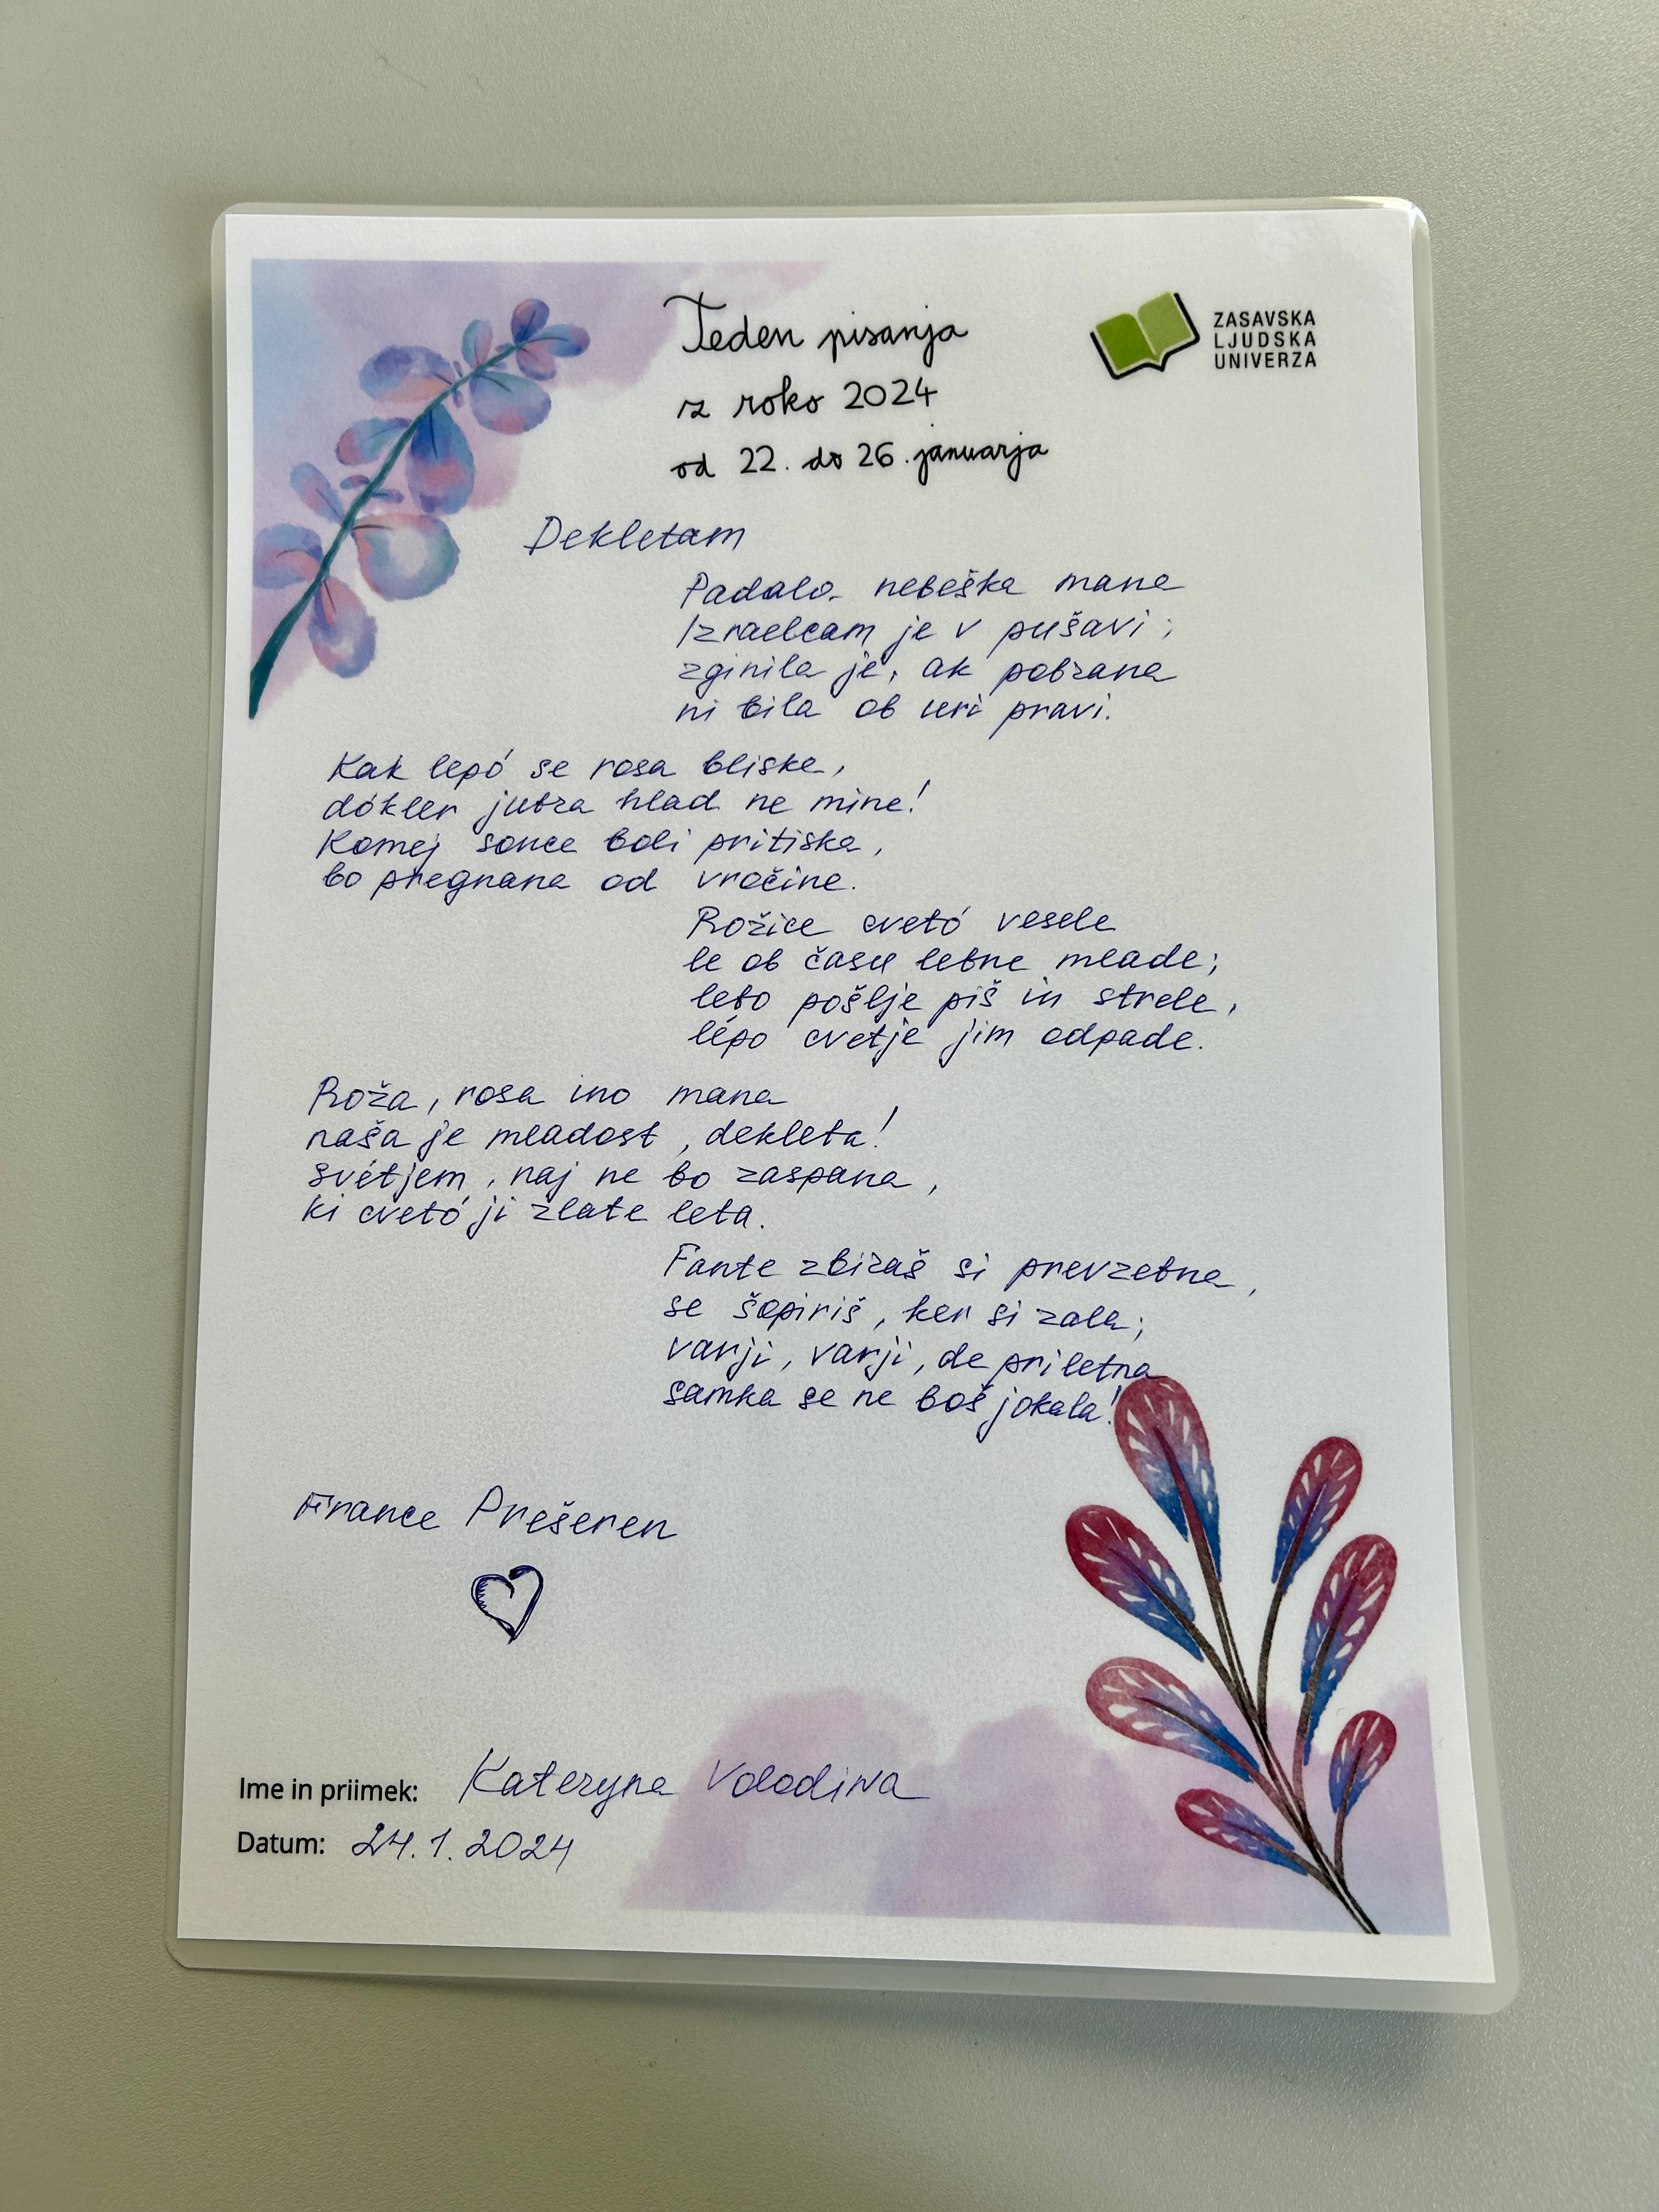 Teden pisanja
z roko 2024
od 22. do 26. januarja
ZASAVSKA
LJUDSKA
UNIVERZA
Dekletam
Padala nebeška mana
Izraelcam je v pušavi;
zginila je, ak pobrana
ni bila ob uri pravi.
Kak lepó se rosa bliska,
dókler jutra hlad ne mine!
Komej sonce bolj pritiska,
bo pregnana od vročine.
Rožice cvetó vesele
le ob času letne mlade;
leto pošlje piš in strele,
lépo cvetje jim odpade.
Roža, rosa ino mana
naša je mladost, dekleta!
svétjem, naj ne bo zaspana,
ki cvetó ji zlate leta.
Fante zbiraš si prevzetna,
se šopiriš, ker si zala;
varji, varji, de priletna
samka se ne boš jokala!
France Prešeren
Ime in priimek: Kateryna Volodina
Datum: 24.1.2024